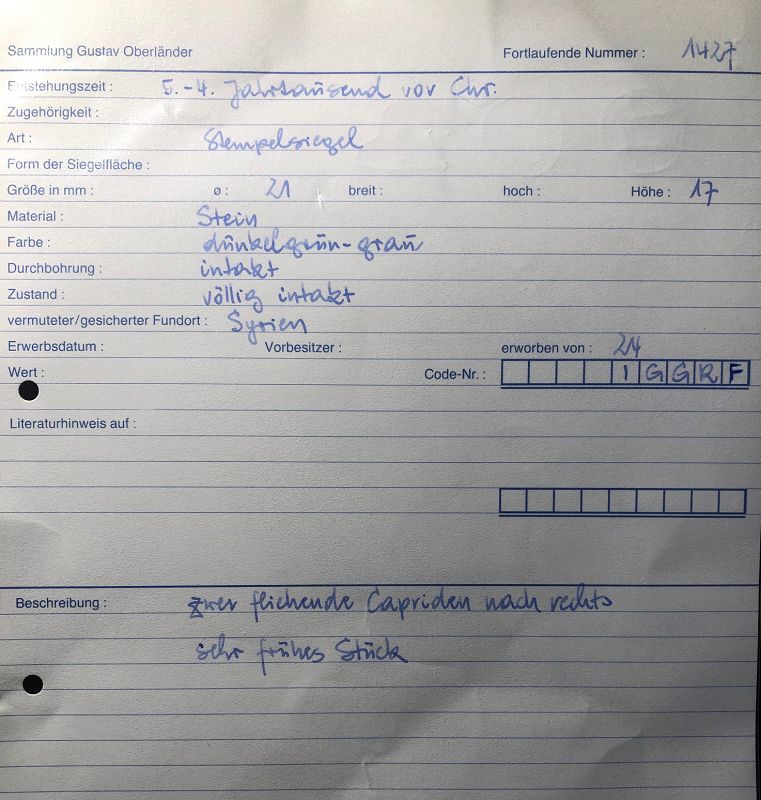 Sammlung Gustav Oberländer Fortlaufende Nummer : 1427
Entstehungszeit : 5.-4. Jahrtausend vor Chr.
Zugehörigkeit :
Art : Stempelsiegel
Form der Siegelfläche :
Größe in mm : ø : 21 breit : hoch : Höhe : 17
Material : Stein
Farbe : dunkelgrün-grau
Durchbohrung : intakt
Zustand : völlig intakt
vermuteter/gesicherter Fundort : Syrien
Erwerbsdatum : Vorbesitzer : erworben von : 24
Wert : Code-Nr. : I G G R F
Literaturhinweis auf :
Beschreibung : zwei fliehende Capriden nach rechts
sehr frühes Stück